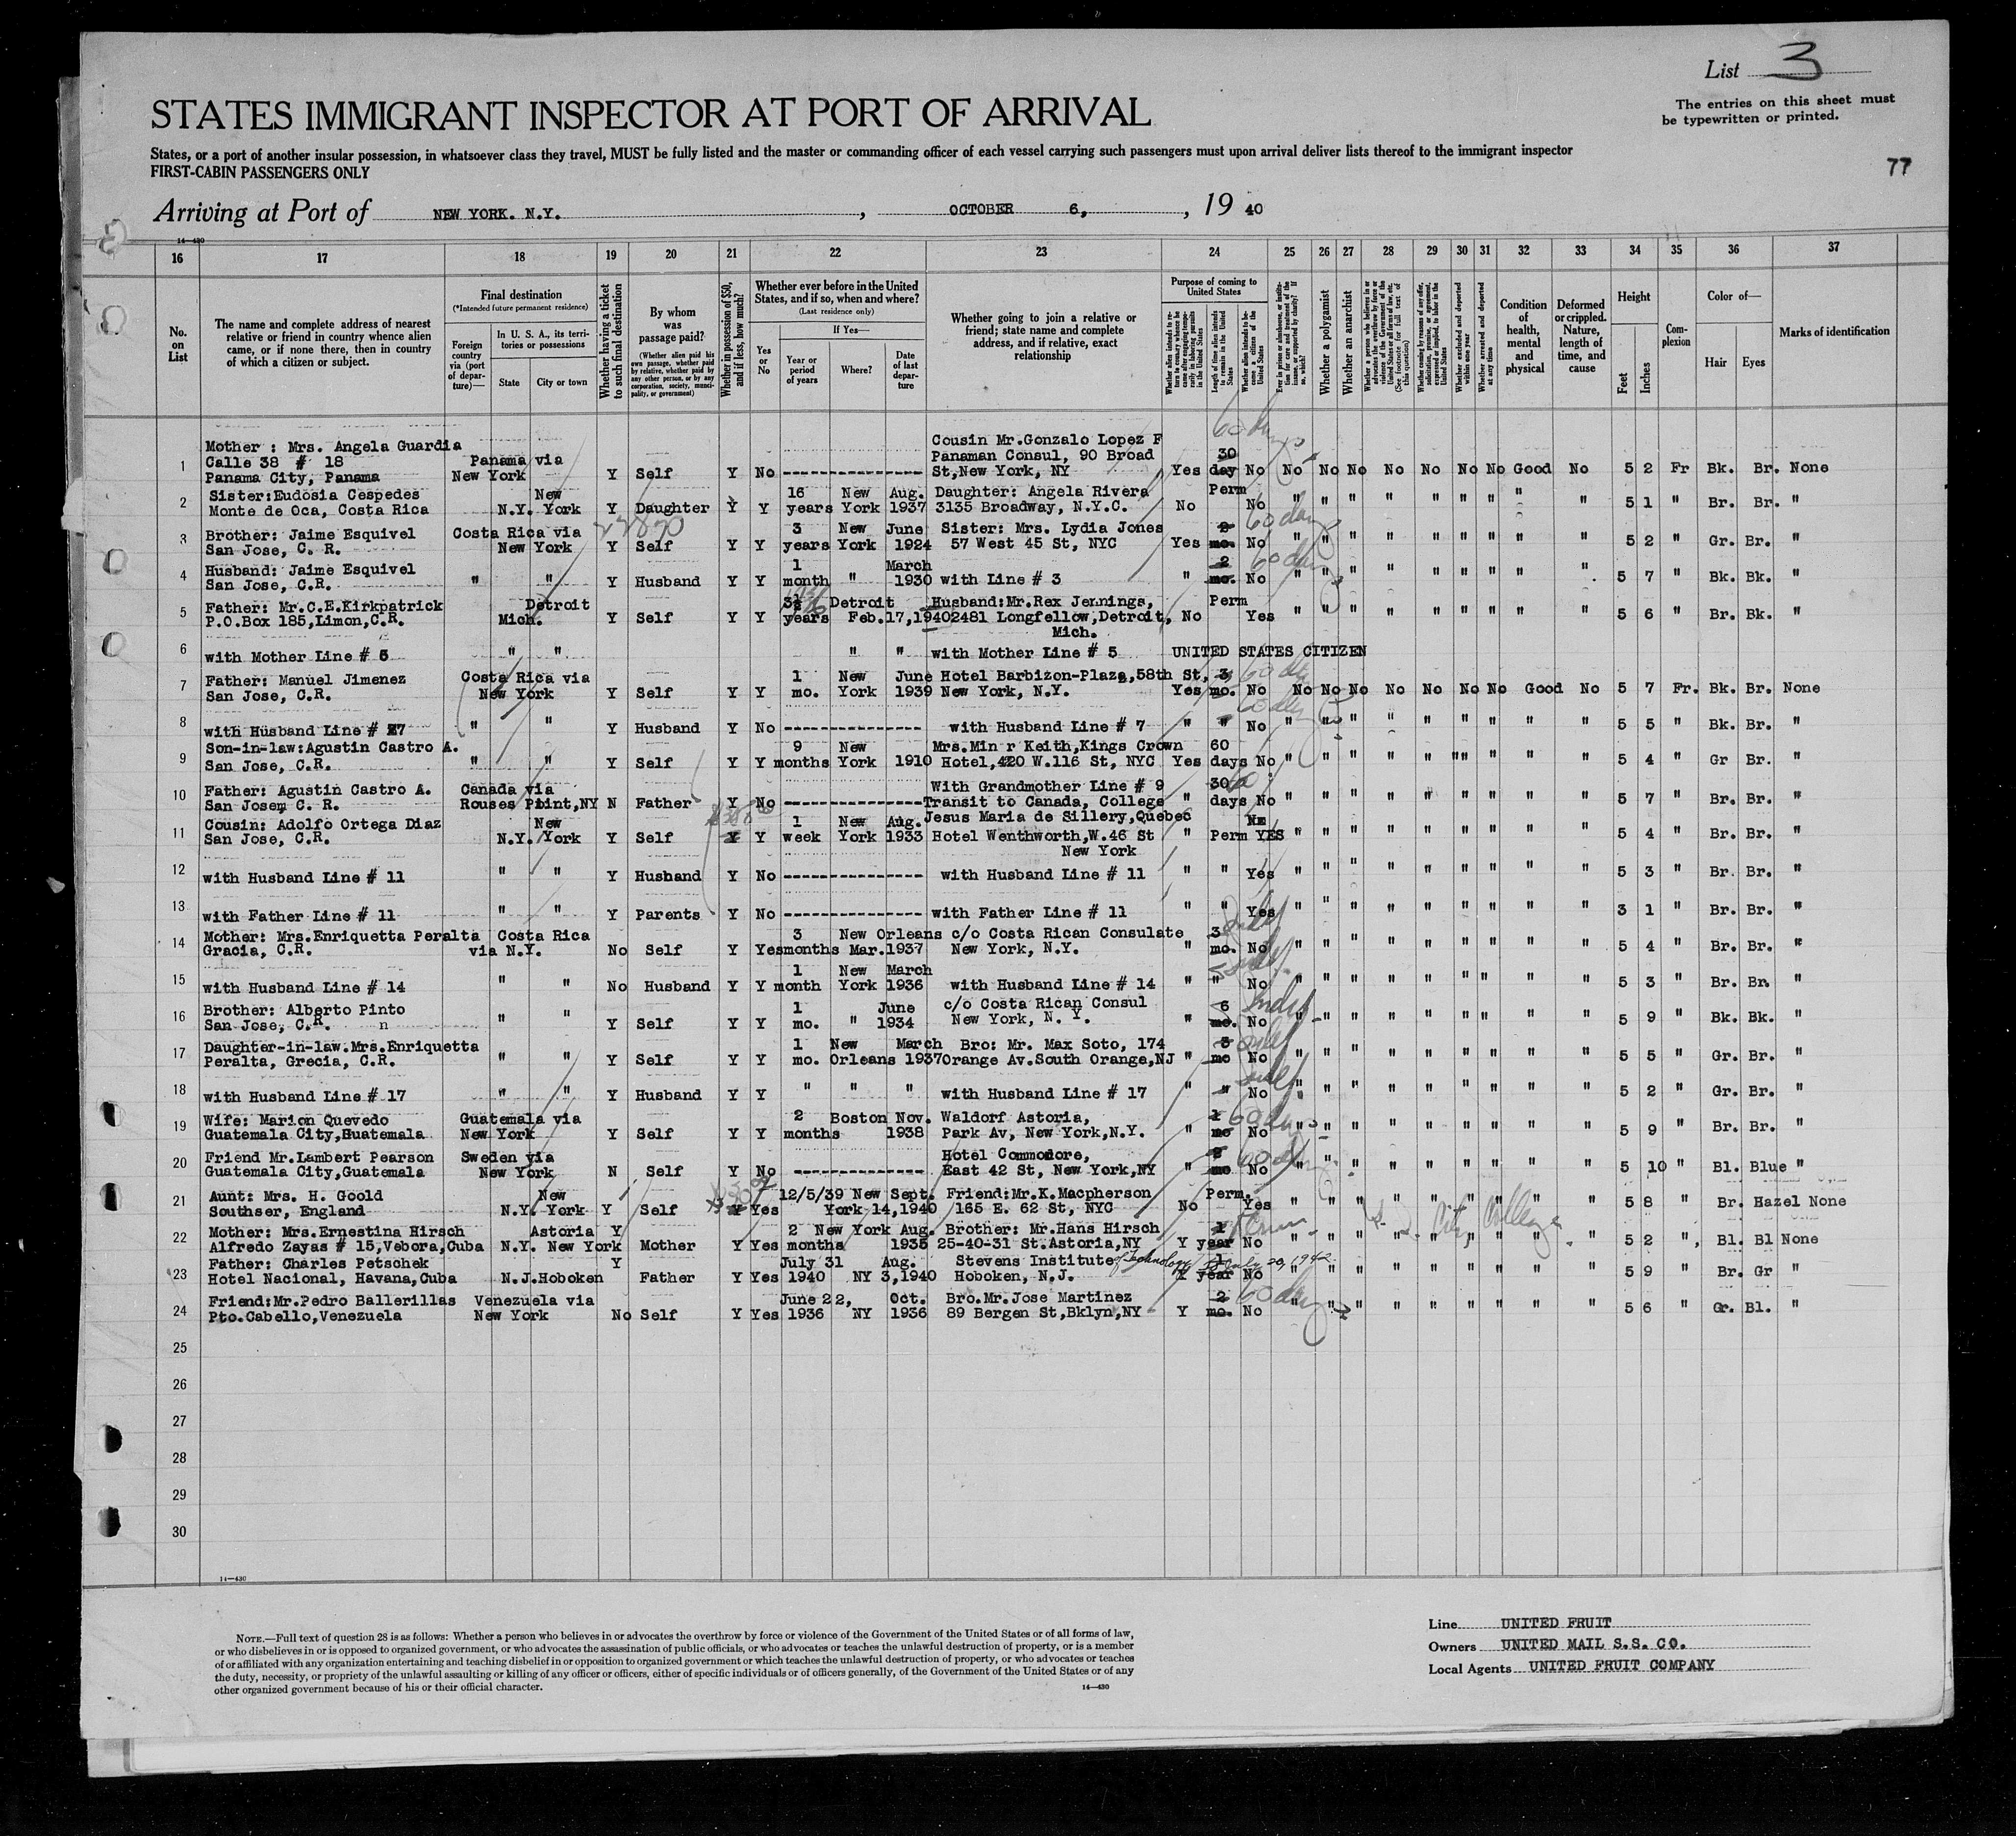 List 3
The entries on this sheet must
be typewritten or printed.
STATES IMMIGRANT INSPECTOR AT PORT OF ARRIVAL
States, or a port of another insular possession, in whatsoever class they travel, MUST be fully listed and the master or commanding officer of each vessel carrying such passengers must upon arrival deliver lists thereof to the immigrant inspector
FIRST-CABIN PASSENGERS ONLY
77
Arriving at Port of NEW YORK. N.Y. , OCTOBER 6, , 19 40
14—430
16 17 18 19 20 21 22 23 24 25 26 27 28 29 30 31 32 33 34 35 36 37
No. on List
The name and complete address of nearest relative or friend in country whence alien came, or if none there, then in country of which a citizen or subject.
Final destination
(*Intended future permanent residence)
Foreign country via (port of departure)—
In U. S. A., its territories or possessions
State
City or town
Whether having a ticket to such final destination
By whom was passage paid?
(Whether alien paid his own passage, whether paid by relative, whether paid by any other person, or by any corporation, society, municipality, or government)
Whether in possession of $50, and if less, how much?
Whether ever before in the United States, and if so, when and where?
(Last residence only)
Yes or No
If Yes—
Year or period of years
Where?
Date of last departure
Whether going to join a relative or friend; state name and complete address, and if relative, exact relationship
Purpose of coming to United States
Length of time alien intends to remain in the United States
Whether alien intends to become a citizen of the United States
Whether a polygamist
Whether an anarchist
Whether excluded and deported within one year
Whether arrested and deported at any time
Condition of health, mental and physical
Deformed or crippled. Nature, length of time, and cause
Height
Feet
Inches
Complexion
Color of—
Hair
Eyes
Marks of identification
Mother : Mrs. Angela Guardia Cousin Mr.Gonzalo Lopez F 60 days
Calle 38 # 18 Panama via Panaman Consul, 90 Broad 30
1 Panama City, Panama New York Y Self Y No --------------- St,New York, NY Yes day No No No No No No No No Good No 5 2 Fr Bk. Br. None
2 Sister:Eudosia Cespedes New 16 New Aug. Daughter: Angela Rivera Perm
Monte de Oca, Costa Rica N.Y. York Y Daughter Y Y years York 1937 3135 Broadway, N.Y.C. No No " " " " " " " " " 5 1 " Br. Br. "
3 Brother: Jaime Esquivel Costa Rica via 3 New June Sister: Mrs. Lydia Jones 2 60 days
San Jose, C. R. New York Y Self Y Y years York 1924 57 West 45 St, NYC Yes mo. No " " " " " " " " " 5 2 " Gr. Br. "
4 Husband: Jaime Esquivel 1 March 2 60 days
San Jose, C.R. " " Y Husband Y Y month " 1930 with Line # 3 " mo. No " " " " " " " " " 5 7 " Bk. Bk. "
5 Father: Mr.C.E.Kirkpatrick Detroit 3½ Detroit Husband:Mr.Rex Jennings, Perm
P.O.Box 185,Limon,C.R. Mich. Y Self Y Y years Feb.17,1940 2481 Longfellow,Detroit, No Yes " " " " " " " " " 5 6 " Br. Bk. "
Mich.
6 with Mother Line # 5 " " " " with Mother Line # 5 UNITED STATES CITIZEN
7 Father: Manuel Jimenez Costa Rica via 1 New June Hotel Barbizon-Plaza,58th St, 3 60 days
San Jose, C.R. New York Y Self Y Y mo. York 1939 New York, N.Y. Yes mo. No No No No No No No No Good No 5 7 Fr. Bk. Br. None
60 days
8 with Husband Line # 7 " " Y Husband Y No --------------- with Husband Line # 7 " " No " " " " " " " " " 5 5 " Bk. Br. "
9 Son-in-law:Agustin Castro A. 9 New Mrs.Min r Keith,Kings Crown 60
San Jose, C.R. " " Y Self Y Y months York 1910 Hotel,420 W.116 St, NYC Yes days No " " " " " " " " " 5 4 " Gr Br. "
10 Father: Agustin Castro A. Canada via With Grandmother Line # 9 30
San Josem C. R. Rouses Point,NY N Father Y No --------------- Transit to Canada, College " days No " " " " " " " " " 5 7 " Br. Br. "
11 Cousin: Adolfo Ortega Diaz New 1 New Aug. Jesus Maria de Sillery,Quebec
San Jose, C.R. N.Y. York Y Self Y Y week York 1933 Hotel Wenthworth,W.46 St " Perm YES " " " " " " " " " 5 4 " Br. Br. "
New York
12 with Husband Line # 11 " " Y Husband Y No --------------- with Husband Line # 11 " " Yes " " " " " " " " " 5 3 " Br. Br. "
13 with Father Line # 11 " " Y Parents Y No --------------- with Father Line # 11 " " Yes " " " " " " " " " 3 1 " Br. Br. "
14 Mother: Mrs.Enriquetta Peralta Costa Rica 3 New Orleans c/o Costa Rican Consulate 3
Gracia, C.R. via N.Y. No Self Y Yes months Mar.1937 New York, N.Y. " mo. No " " " " " " " " " 5 4 " Br. Br. "
15 1 New March
with Husband Line # 14 " " No Husband Y Y month York 1936 with Husband Line # 14 " " No " " " " " " " " " 5 3 " Br. Br. "
16 Brother: Alberto Pinto 1 June c/o Costa Rican Consul 6
San Jose, C.R. n " " Y Self Y Y mo. " 1934 New York, N. Y. " mo. No " " " " " " " " " 5 9 " Bk. Bk. "
17 Daughter-in-law.Mrs.Enriquetta 1 New March Bro: Mr. Max Soto, 174 3
Peralta, Grecia, C.R. " " Y Self Y Y mo. Orleans 1937 Orange Av.South Orange,NJ " mo No " " " " " " " " " 5 5 " Gr. Br. "
18 with Husband Line # 17 " " Y Husband Y Y " " " with Husband Line # 17 " " No " " " " " " " " " 5 2 " Gr. Br. "
19 Wife: Marion Quevedo Guatemala via 2 Boston Nov. Waldorf Astoria, 1 60 days
Guatemala City,Huatemala New York Y Self Y Y months 1938 Park Av, New York,N.Y. " mo No " " " " " " " " " 5 9 " Br. Br. "
20 Friend Mr.Lambert Pearson Sweden via Hotel Commodore, 2 60 days
Guatemala City,Guatemala New York N Self Y No --------------- East 42 St, New York,NY " mo No " " " " " " " " " 5 10 " Bl. Blue "
21 Aunt: Mrs. H. Goold New 12/5/39 New Sept. Friend:Mr.K.Macpherson Perm.
Southser, England N.Y. York Y Self Y Yes York 14,1940 165 E. 62 St, NYC No Yes " " " " " " " " " 5 8 " Br. Hazel None
22 Mother: Mrs.Ernestina Hirsch Astoria Y 2 New York Aug. Brother: Mr.Hans Hirsch 1
Alfredo Zayas # 15,Vebora,Cuba N.Y. New York Mother Y Yes months 1935 25-40-31 St.Astoria,NY Y year No " " " " " " " " " 5 2 " Bl. Bl None
23 Father: Charles Petschek Y July 31 Aug. Stevens Institute of Technology to July 20, 1942 1
Hotel Nacional, Havana,Cuba N.J.Hoboken Father Y Yes 1940 NY 3,1940 Hoboken, N.J. Y year No " " " " " " " " " 5 9 " Br. Gr "
24 Friend:Mr.Pedro Ballerillas Venezuela via June 22, Oct. Bro.Mr.Jose Martinez 2 60 days
Pto.Cabello,Venezuela New York No Self Y Yes 1936 NY 1936 89 Bergen St,Bklyn,NY Y mo. No " " " " " " " " " 5 6 " Gr. Bl. "
25
26
27
28
29
30
14—430
NOTE.—Full text of question 28 is as follows: Whether a person who believes in or advocates the overthrow by force or violence of the Government of the United States or of all forms of law,
or who disbelieves in or is opposed to organized government, or who advocates the assassination of public officials, or who advocates or teaches the unlawful destruction of property, or is a member
of or affiliated with any organization entertaining and teaching disbelief in or opposition to organized government or which teaches the unlawful destruction of property, or who advocates or teaches
the duty, necessity, or propriety of the unlawful assaulting or killing of any officer or officers, either of specific individuals or of officers generally, of the Government of the United States or of any
other organized government because of his or their official character.
14—430
Line UNITED FRUIT
Owners UNITED MAIL S.S. CO.
Local Agents UNITED FRUIT COMPANY